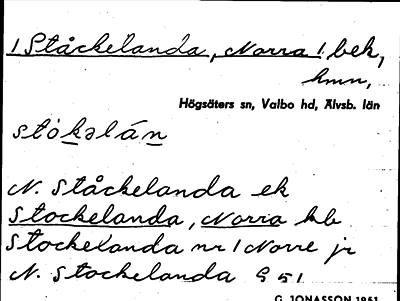 1 Ståckelanda, Norra 1. bek,
hmn,
Högsäters sn, Valbo hd, Älvsb. län
stòkǝlán
N. Ståckelanda ek
Stockelanda, Norra hb
Stockelanda nr 1 Norre jr
N. Stockelanda G 51
G. JONASSON 1951